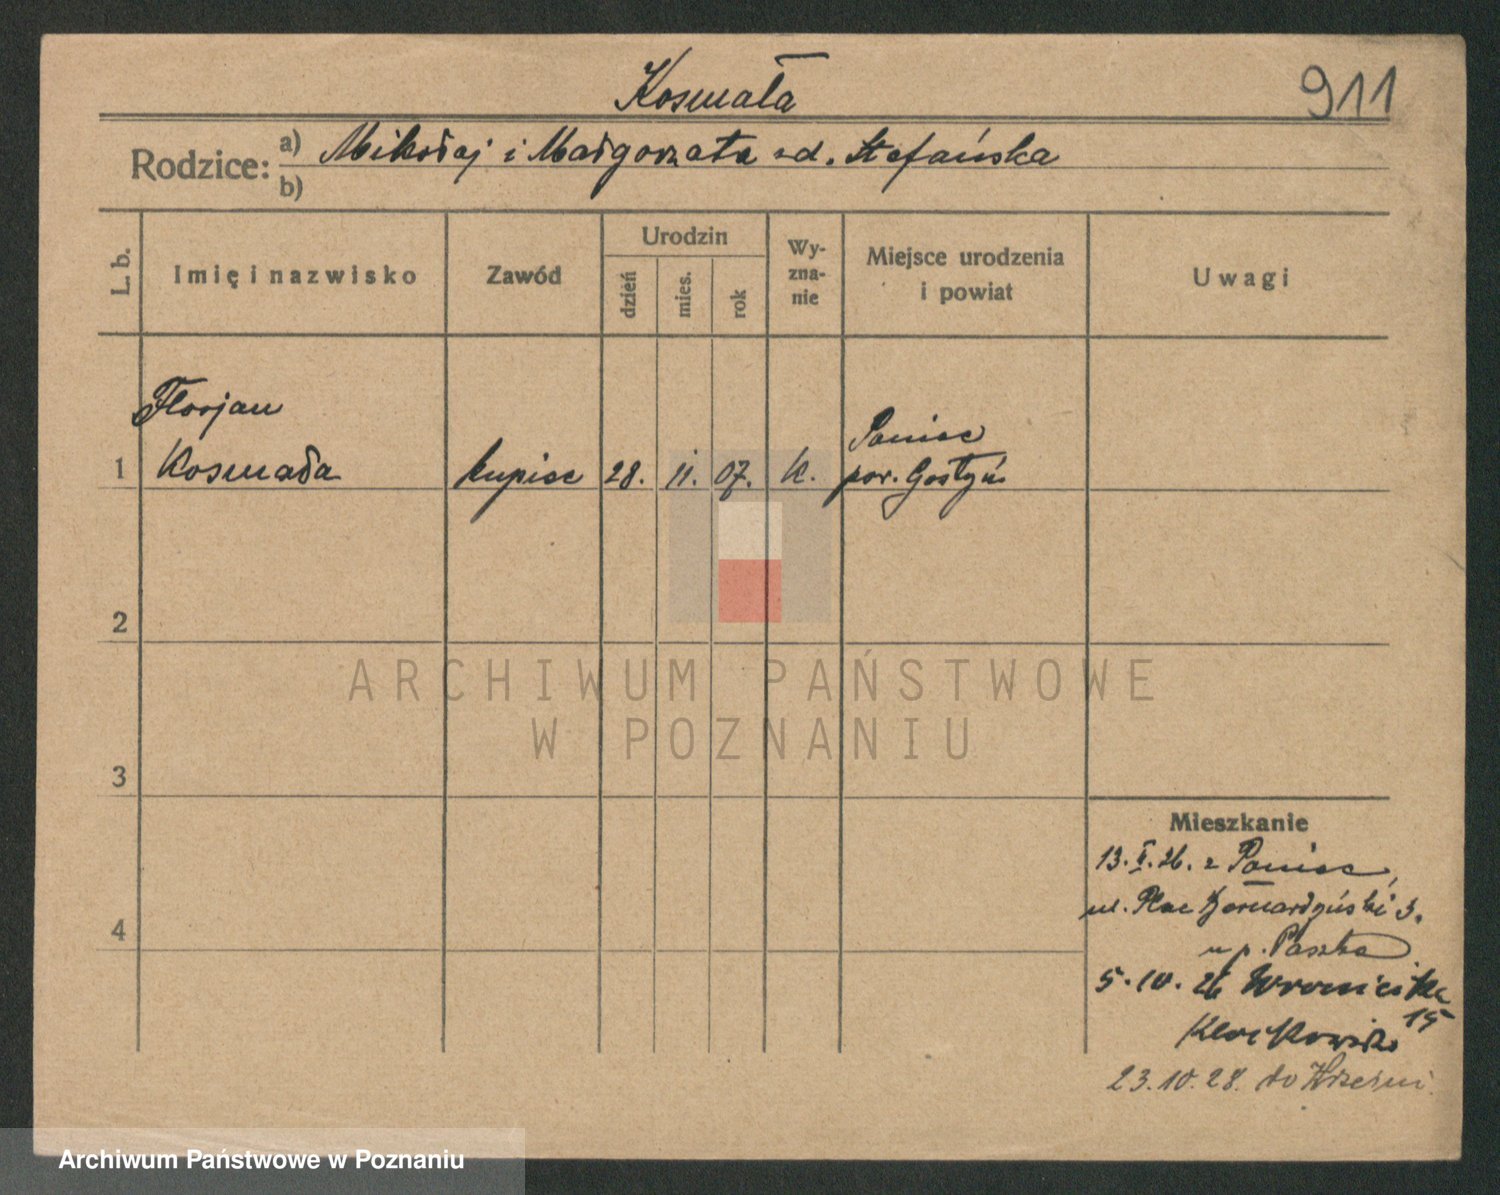 Kosmała
911
Rodzice: a) Mikołaj i Małgorzata zd. Stefańska
b)
L. b.
Imię i nazwisko
Zawód
Urodzin
dzień
mies.
rok
Wy-
zna-
nie
Miejsce urodzenia
i powiat
Uwagi
Florjan
1 Kosmała kupiec 28. 11. 07. k.
Poniec
pow. Gostyń
2
3
4
ARCHIWUM PAŃSTWOWE
W POZNANIU
Mieszkanie
13. 26. z Poniec,
ul. Plac Bernardyński 3.
u p.
5.10.26 Wroniecka
15
23.10.28. do Wrześni
Archiwum Państwowe w Poznaniu